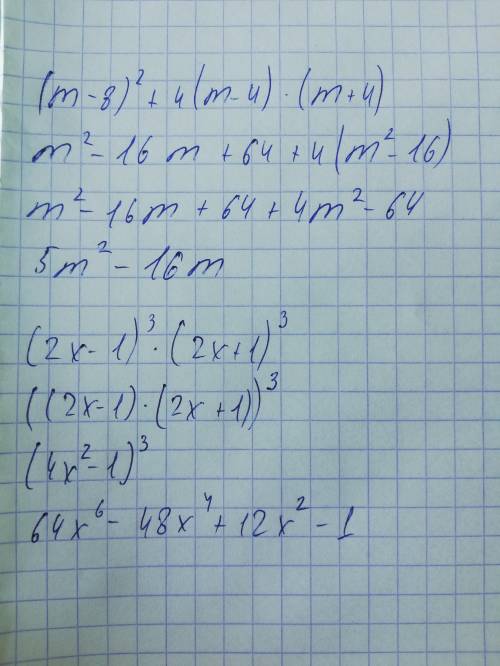 (m-8)² + 4(m-4)·(m+4)
m² - 16m + 64 + 4(m² - 16)
m² - 16m + 64 + 4m² - 64
5m² - 16m
(2x-1)³·(2x+1)³
((2x-1)·(2x+1))³
(4x²-1)³
64x⁶ - 48x⁴ + 12x² - 1